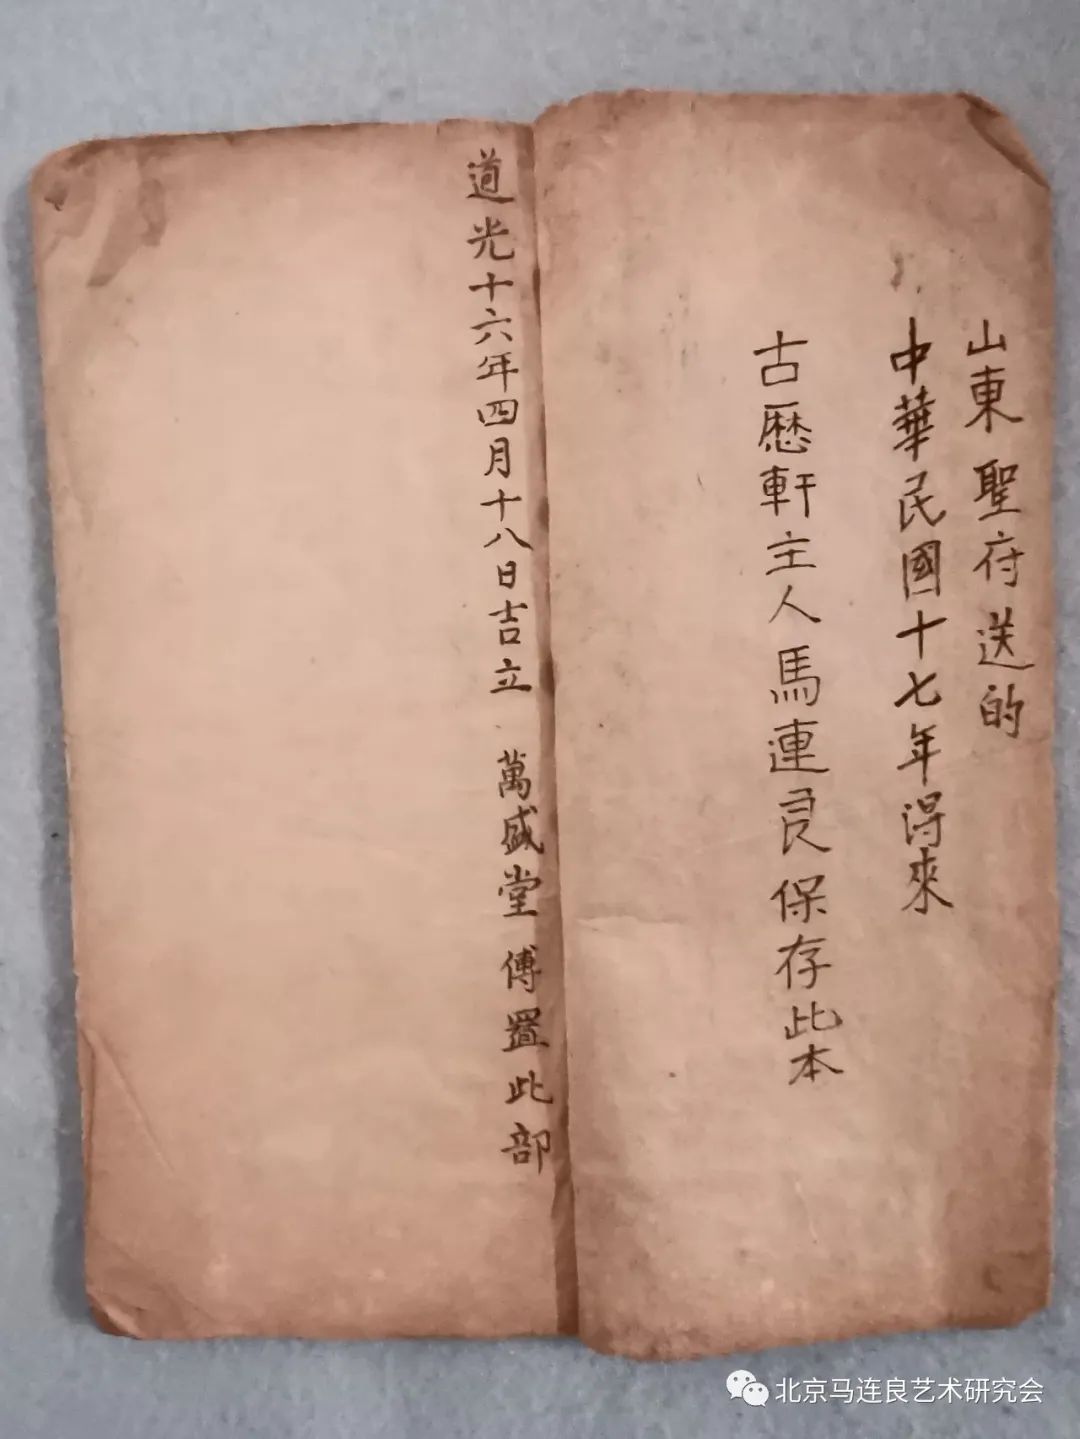 山東聖府送的
中華民國十七年得來
古歷軒主人馬連良保存此本
道光十六年四月十八日吉立 萬盛堂傅置此部
北京马连良艺术研究会